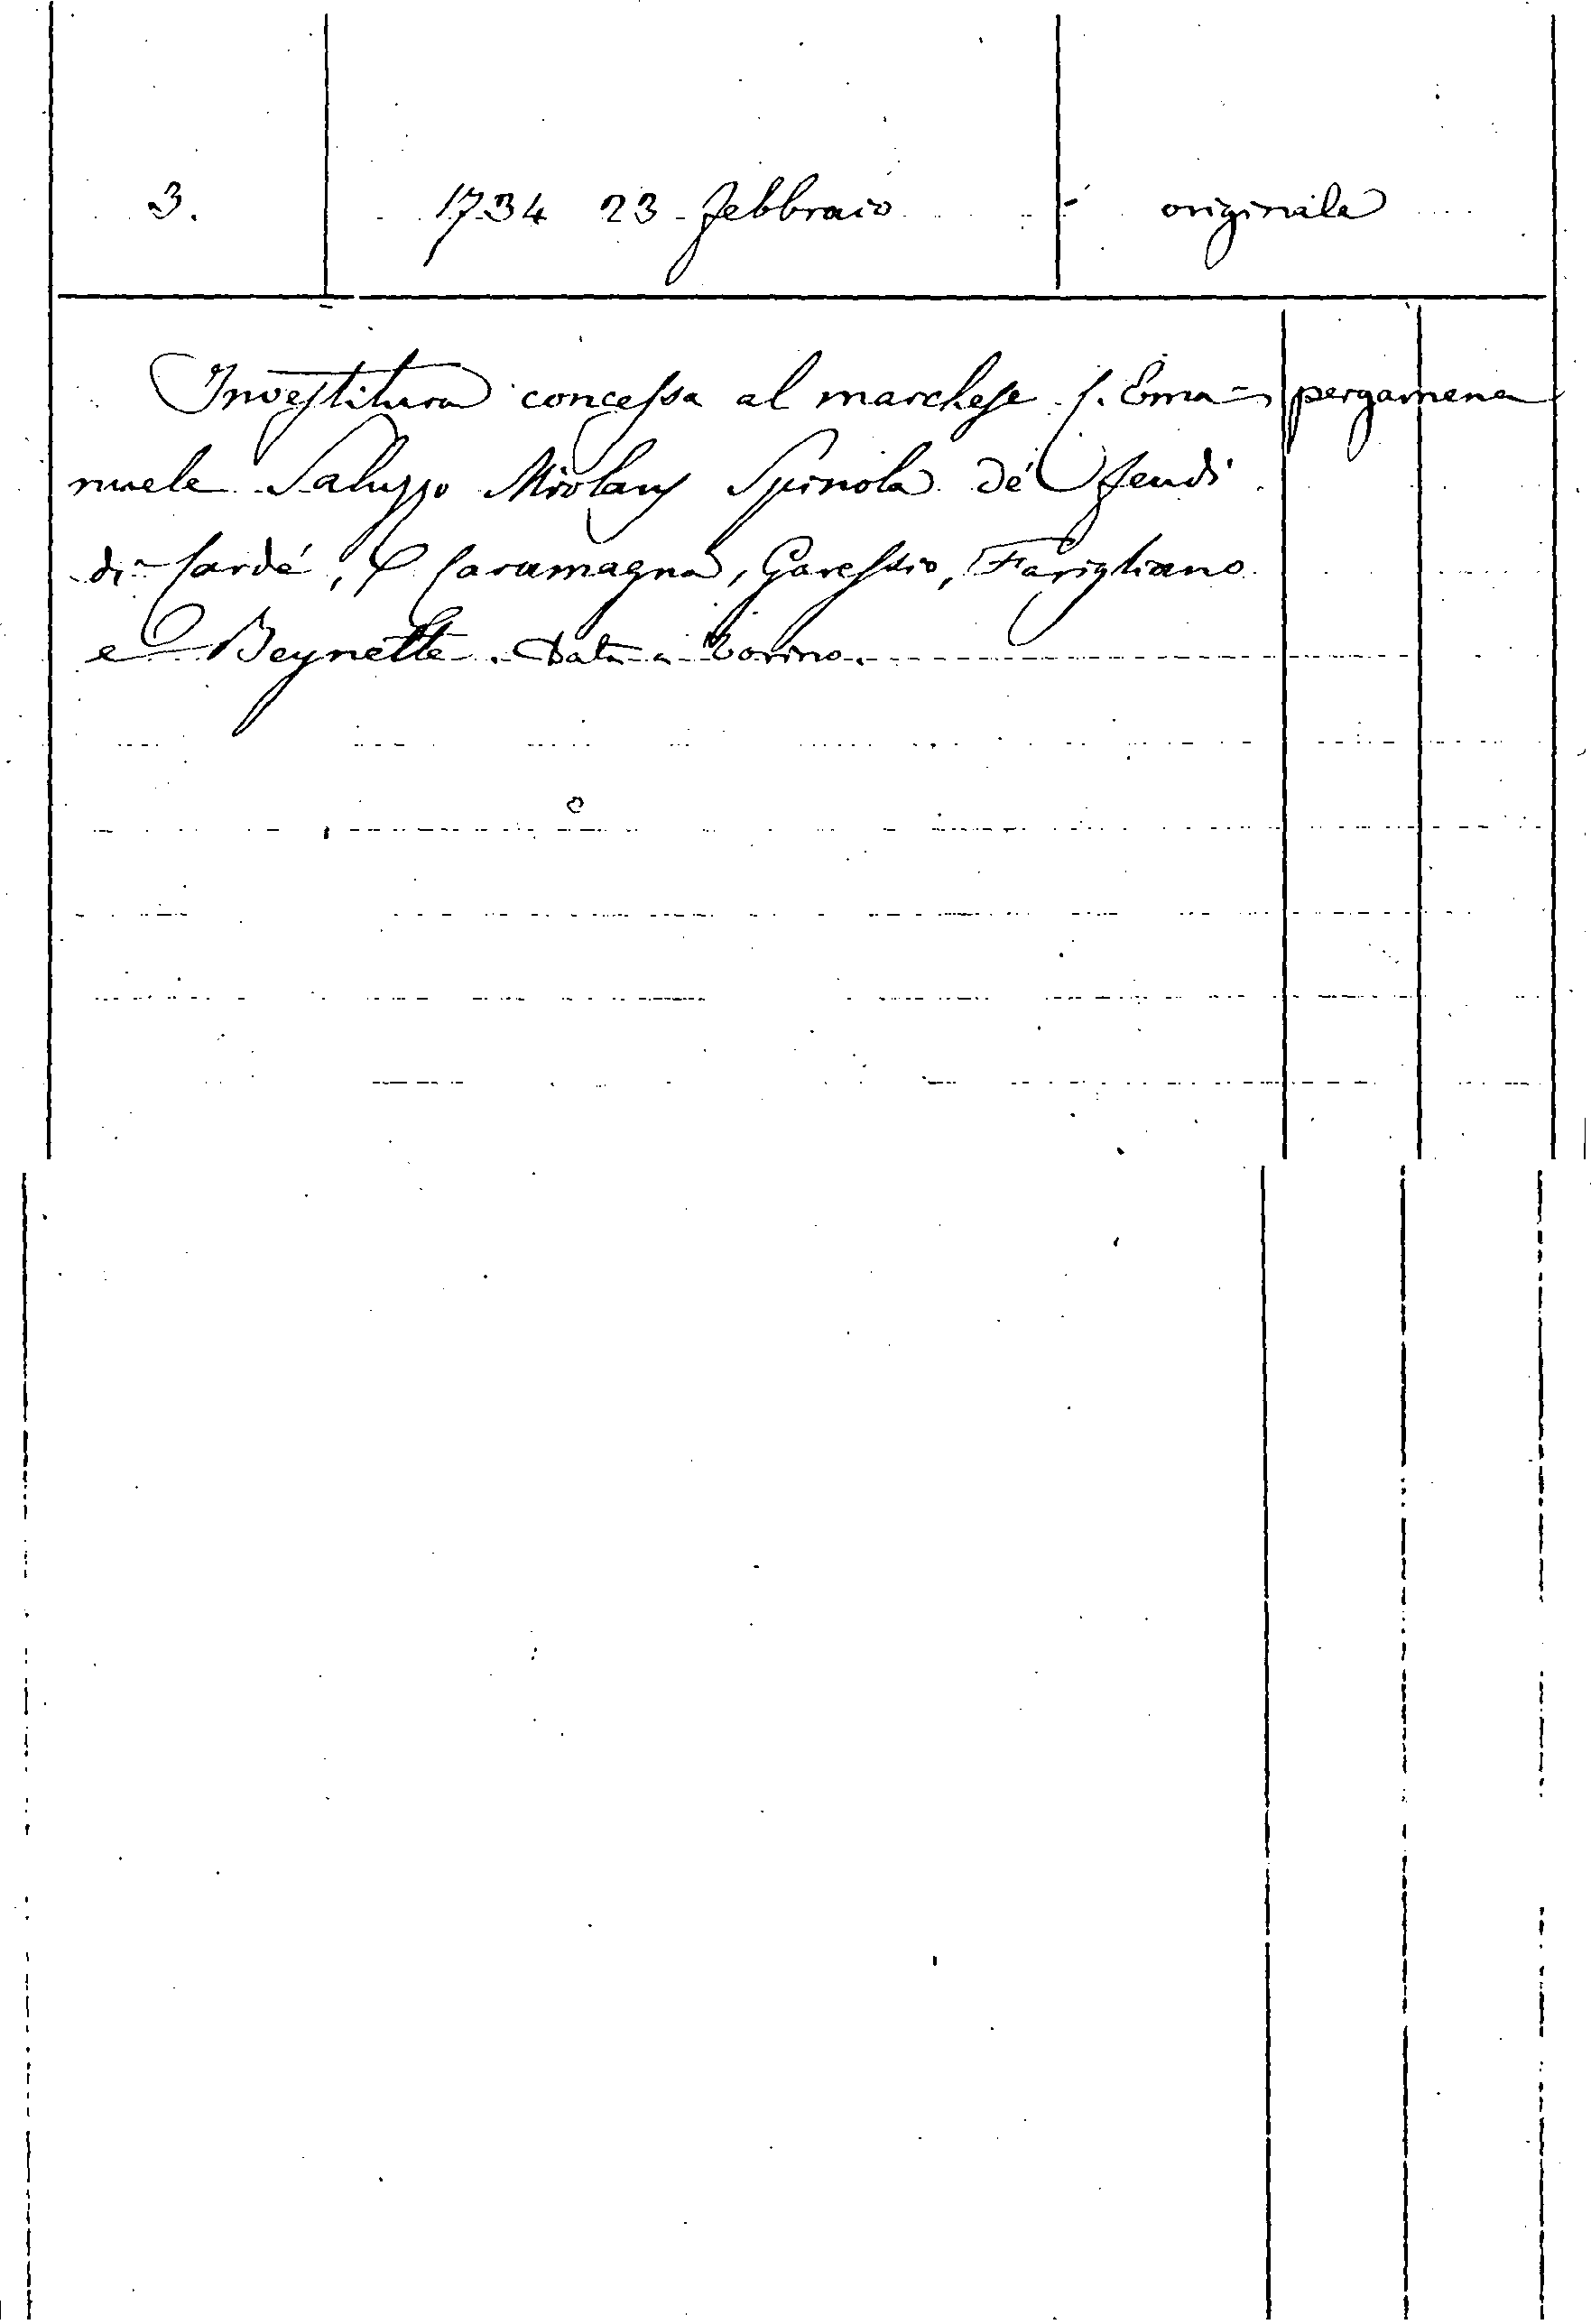 3. 1734 23 febbraio originale
Investitura concessa al marchese C. Ema= pergamena
nuele Saluzzo Miolans Spinola de' feudi
di Cardé, Caramagna, Garessio, Farigliano
e Beynette. Data a Torino.